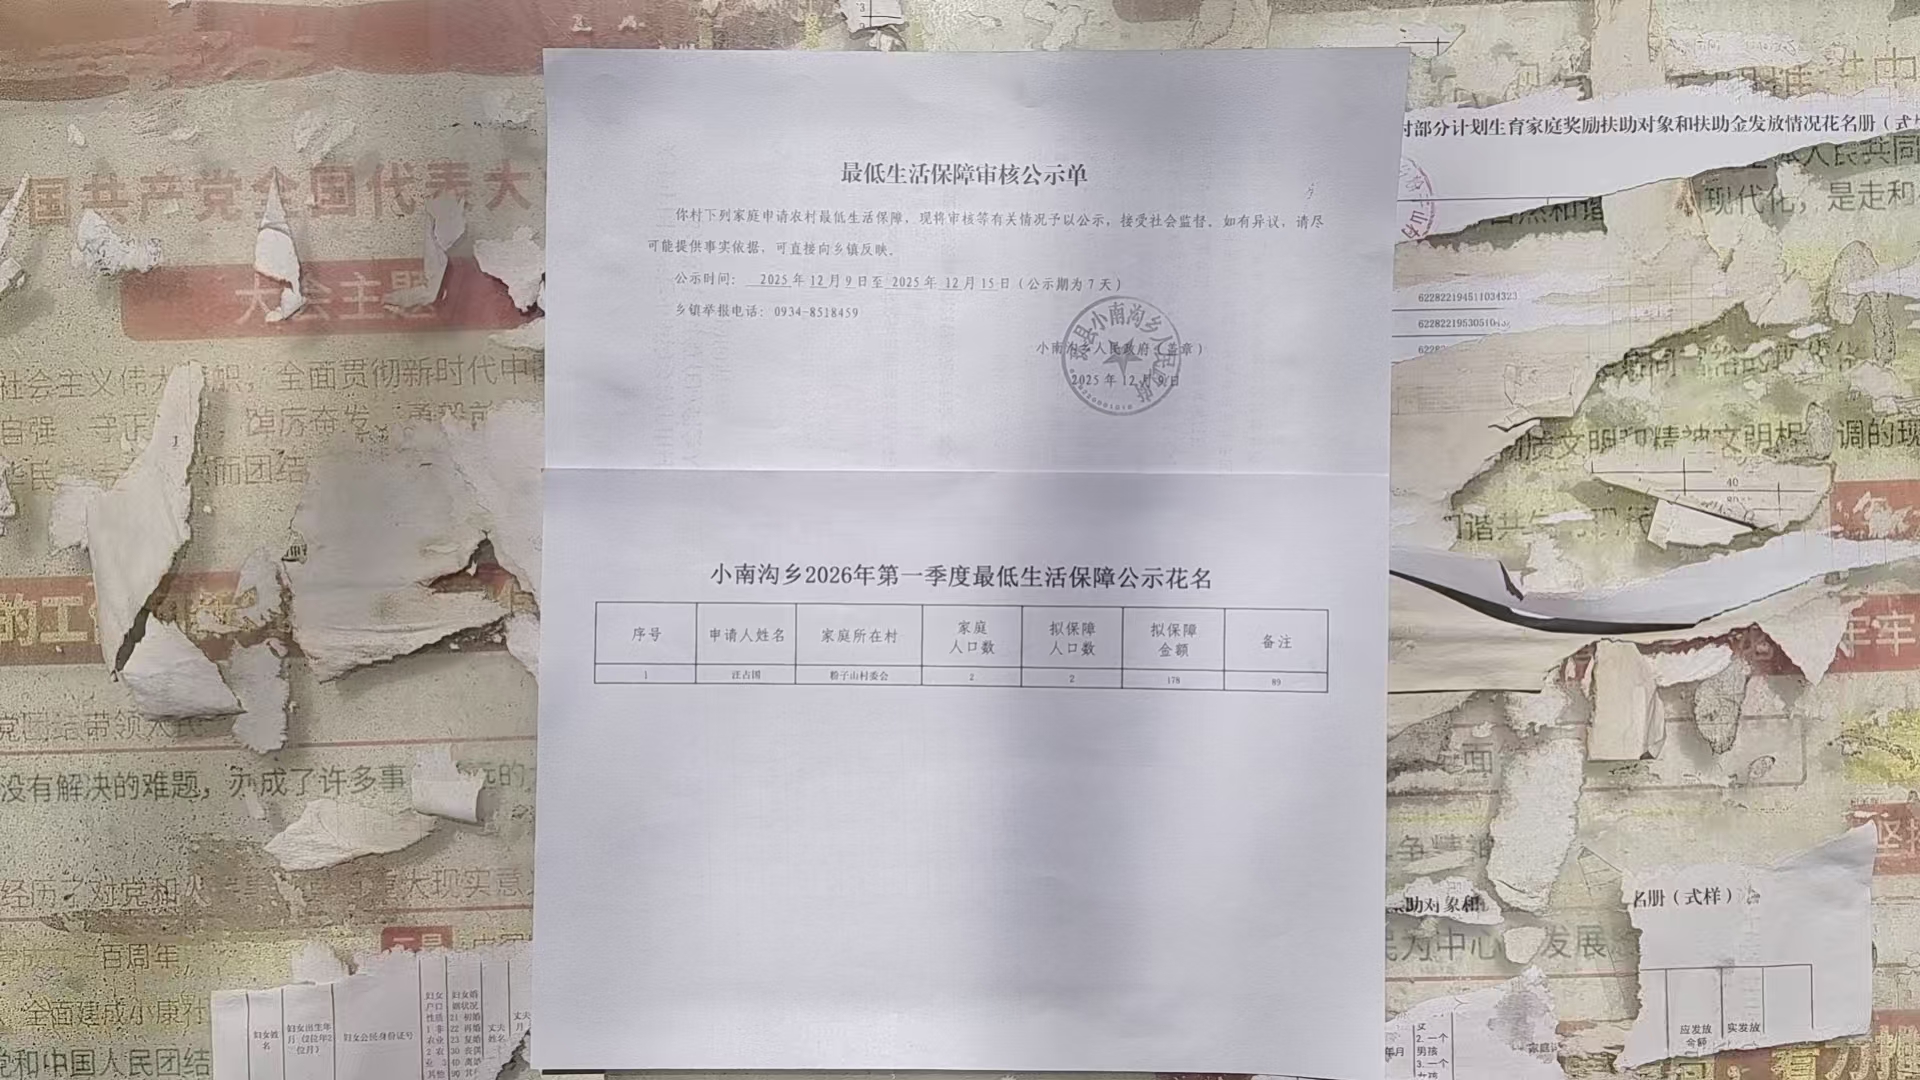 最低生活保障审核公示单
你村下列家庭申请农村最低生活保障，现将审核等有关情况予以公示，接受社会监督。如有异议，请尽
可能提供事实依据，可直接向乡镇反映。
公示时间： 2025年12月9日至2025年12月15日（公示期为7天）
乡镇举报电话：0934-8518459
小南沟乡人民政府（盖章）
2025年12月9日
小南沟乡2026年第一季度最低生活保障公示花名
序号 申请人姓名 家庭所在村 家庭人口数 拟保障人口数 拟保障金额 备注
1 汪占国 粉子山村委会 2 2 178 89
国共产党全国代表大
大会主题
全面贯彻新时代中
而团结
没有解决的难题，办成了许多事
经历了对党和人
大现实意
一百周年
全面建成小康社
党和中国人民团结
妇女姓名
妇女出生年月（2位年2位月）
妇女公民身份证号
村部分计划生育家庭奖励扶助对象和扶助金发放情况花名册（式
现代化，是走和
622822194511034323
调的现
40
助对象和
名册（式样）
民为中心
发展
应发放金额
实发放
2.一个男孩
3.一个